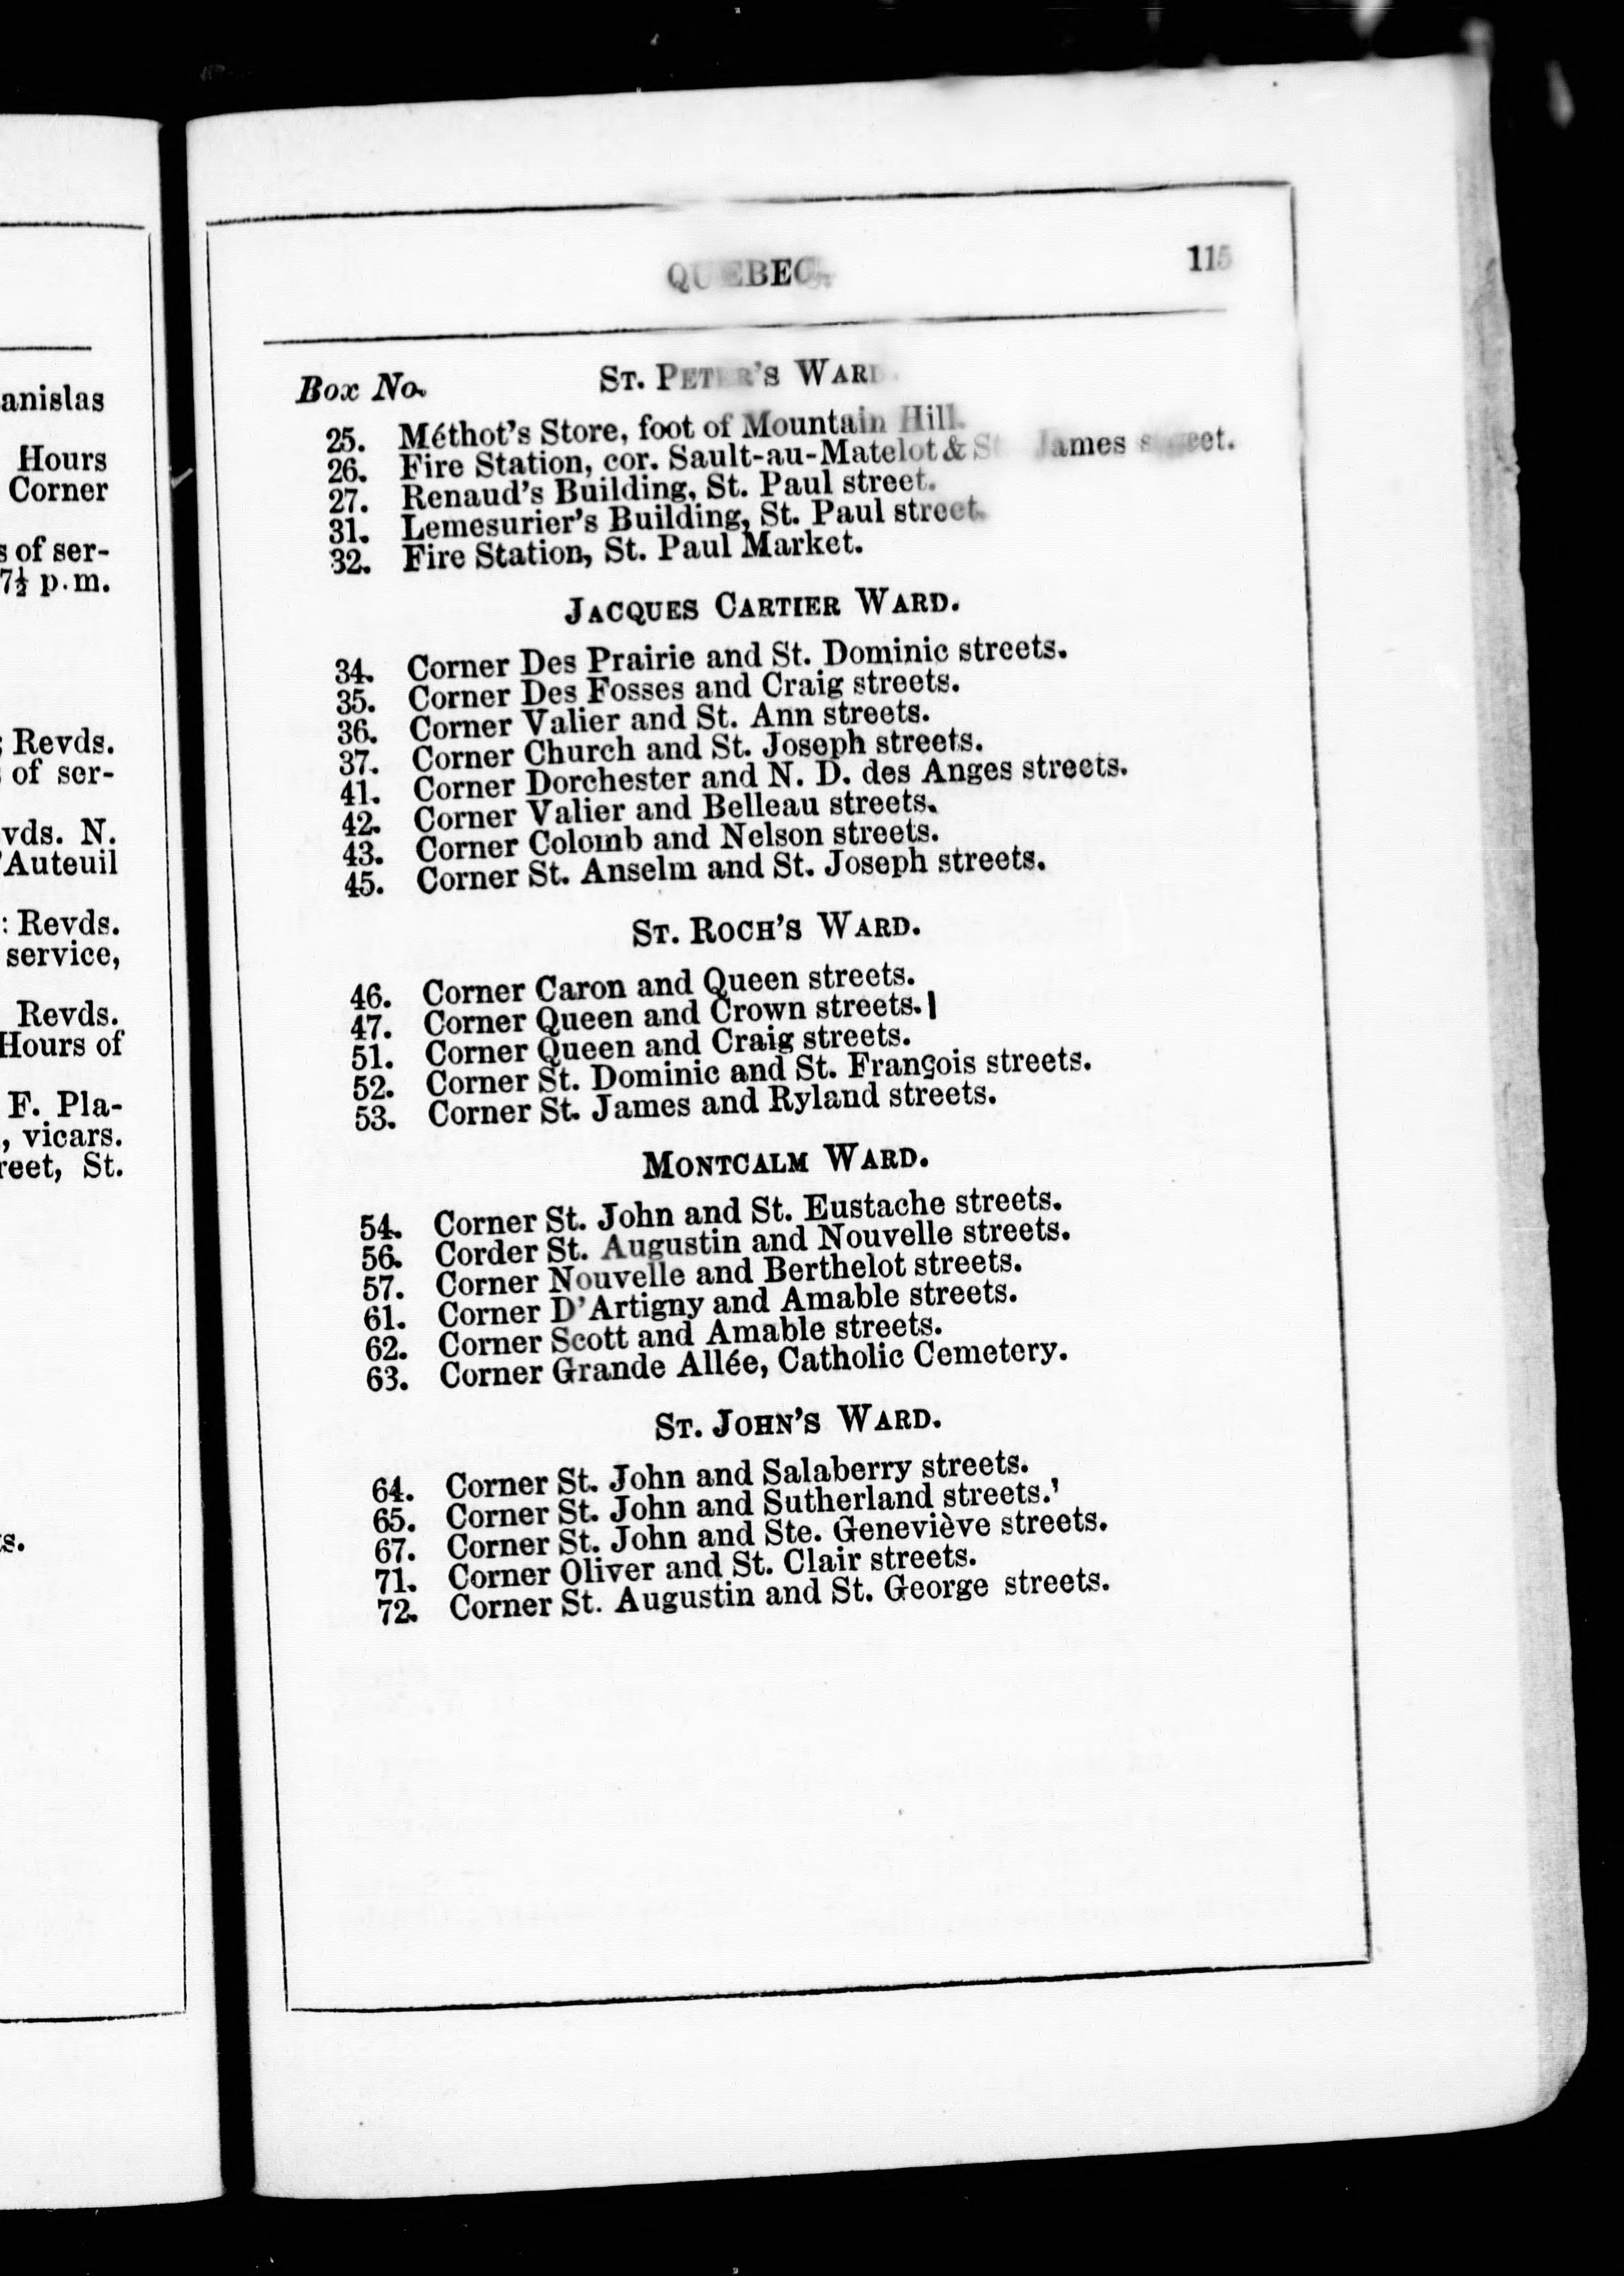 anislas
Hours
Corner
s of ser-
7½ p.m.
; Revds.
of ser-
vds. N.
'Auteuil
: Revds.
service,
Revds.
Hours of
F. Pla-
, vicars.
reet, St.
s.
QUEBEC. 115
Box No. ST. PETER'S WARD.
25. Méthot's Store, foot of Mountain Hill.
26. Fire Station, cor. Sault-au-Matelot & St. James street.
27. Renaud's Building, St. Paul street.
31. Lemesurier's Building, St. Paul street.
32. Fire Station, St. Paul Market.
JACQUES CARTIER WARD.
34. Corner Des Prairie and St. Dominic streets.
35. Corner Des Fosses and Craig streets.
36. Corner Valier and St. Ann streets.
37. Corner Church and St. Joseph streets.
41. Corner Dorchester and N. D. des Anges streets.
42. Corner Valier and Belleau streets.
43. Corner Colomb and Nelson streets.
45. Corner St. Anselm and St. Joseph streets.
ST. ROCH'S WARD.
46. Corner Caron and Queen streets.
47. Corner Queen and Crown streets.
51. Corner Queen and Craig streets.
52. Corner St. Dominic and St. François streets.
53. Corner St. James and Ryland streets.
MONTCALM WARD.
54. Corner St. John and St. Eustache streets.
56. Corder St. Augustin and Nouvelle streets.
57. Corner Nouvelle and Berthelot streets.
61. Corner D'Artigny and Amable streets.
62. Corner Scott and Amable streets.
63. Corner Grande Allée, Catholic Cemetery.
ST. JOHN'S WARD.
64. Corner St. John and Salaberry streets.
65. Corner St. John and Sutherland streets.'
67. Corner St. John and Ste. Geneviève streets.
71. Corner Oliver and St. Clair streets.
72. Corner St. Augustin and St. George streets.